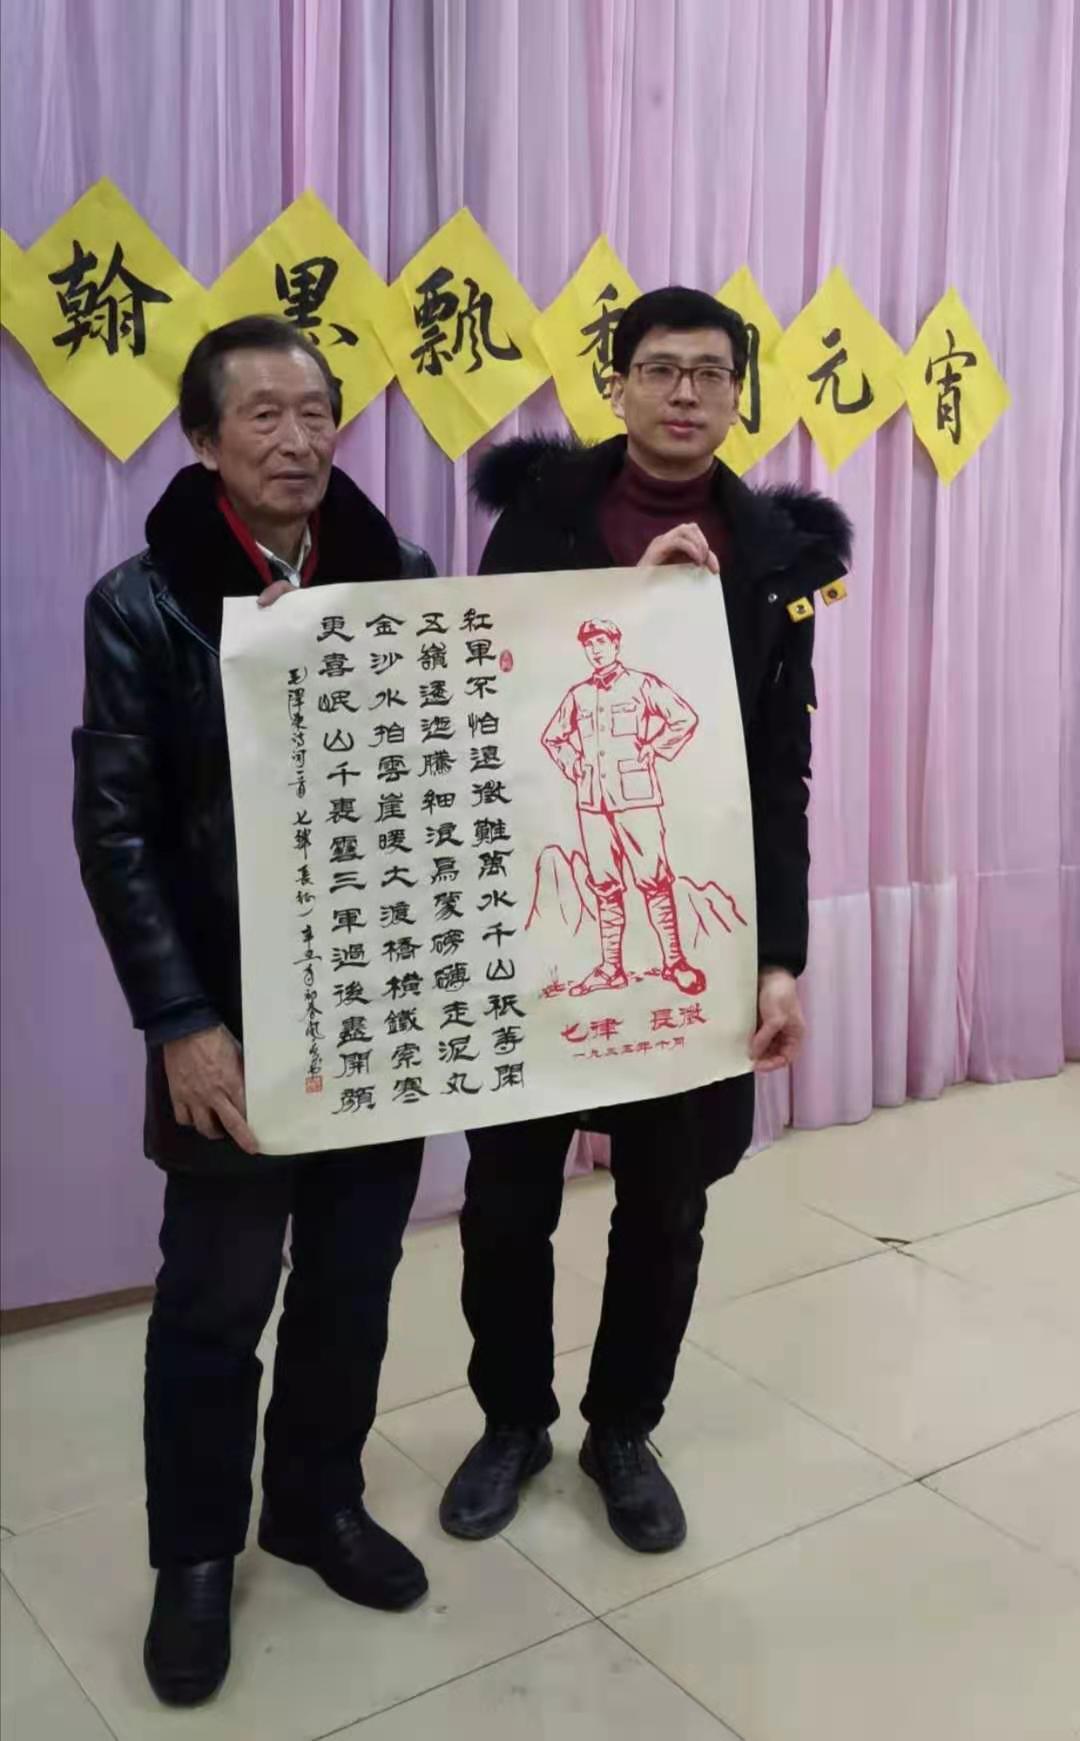 翰墨飘香 元宵
紅軍不怕遠徵難萬水千山衹等閑
五嶺逶迤騰細浪烏蒙磅礴走泥丸
金沙水拍雲崖暖大渡橋橫鐵索寒
更喜岷山千裏雪三軍過後盡開顏
毛澤東詩詞一首 七律 長征 辛丑年初春
七律 長徵
一九三五年十月